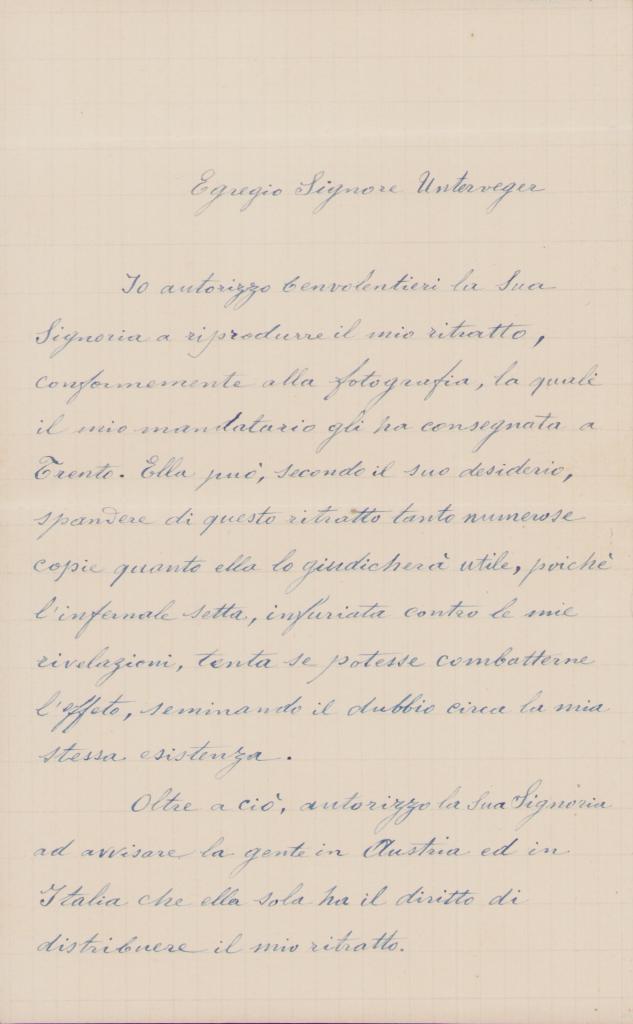 Egregio Signore Unterveger
Io autorizzo benvolentieri la Sua
Signoria a riprodurre il mio ritratto,
conformemente alla fotografia, la quale
il mio mandatario gli ha consegnata a
Trento. Ella può, secondo il suo desiderio,
spandere di questo ritratto tanto numerose
copie quanto ella lo giudicherà utile, poichè
l'infernale setta, infuriata contro le mie
rivelazioni, tenta se potesse combatterne
l'effeto, seminando il dubbio circa la mia
stessa esistenza.
Oltre a ciò, autorizzo la Sua Signoria
ad avvisare la gente in Austria ed in
Italia che ella sola ha il diritto di
distribuere il mio ritratto.